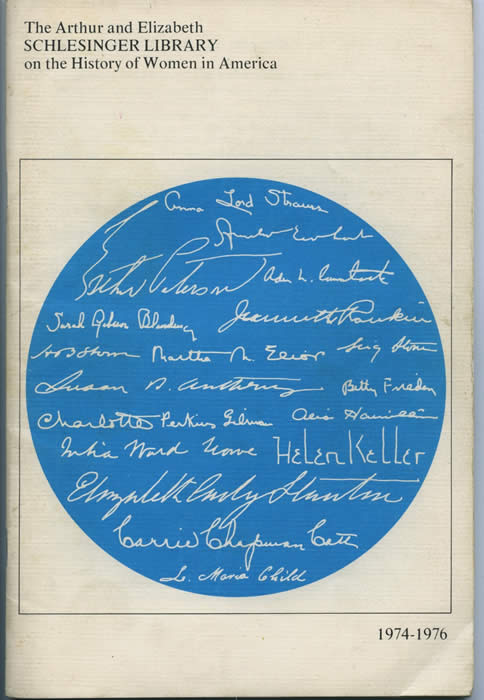 The Arthur and Elizabeth
SCHLESINGER LIBRARY
on the History of Women in America
Anna Lord Strauss
Amelia Earhart
Esther Peterson
Ada L. Comstock
Sarah Gibson Blanding
Jeannette Rankin
H B Stowe
Martha M. Eliot
Lucy Stone
Susan B. Anthony
Betty Friedan
Charlotte Perkins Gilman
Alice Hamilton
Julia Ward Howe
Helen Keller
Elizabeth Cady Stanton
Carrie Chapman Catt
L. Maria Child
1974-1976